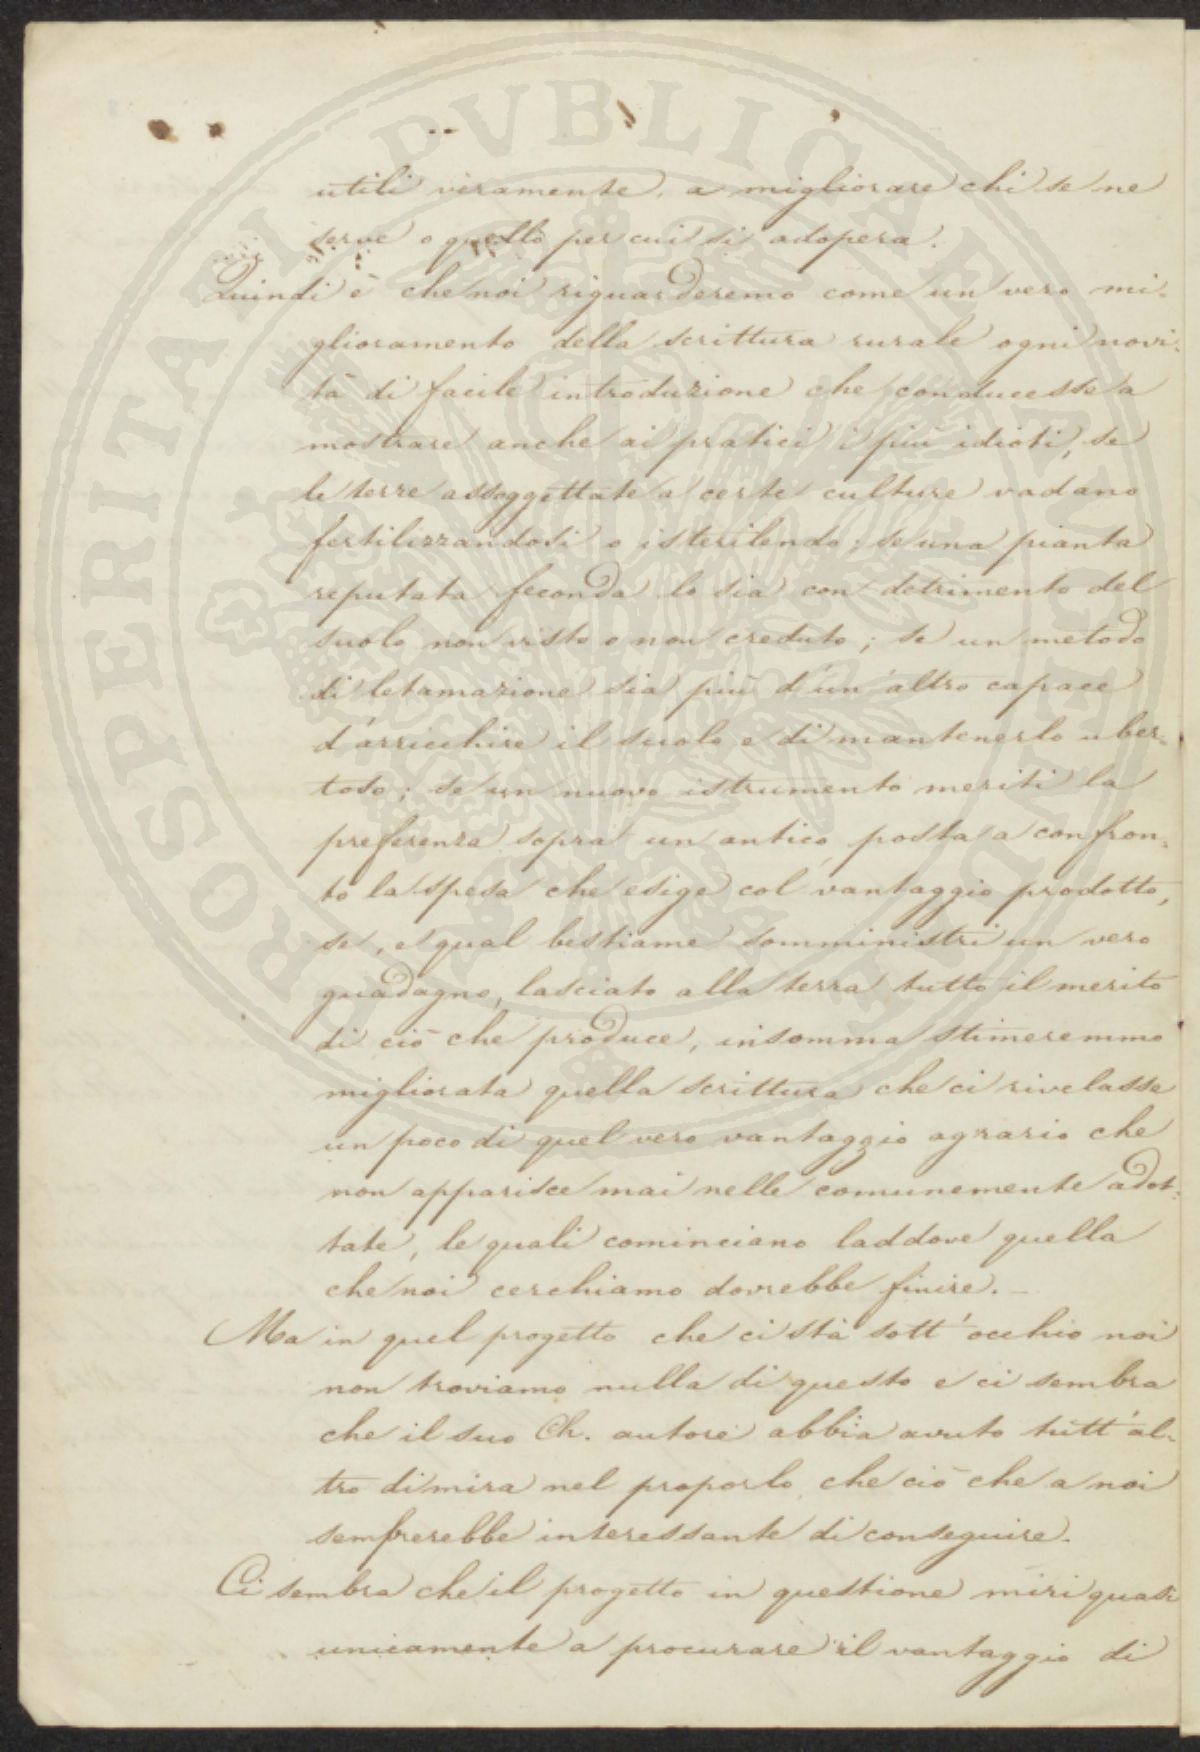 utili veramente, a migliorare chi se ne
serve o quello per cui si adopera.
Quindi è che noi riguarderemo come un vero mi-
glioramento della scrittura rurale ogni novi-
tà di facile introduzione che conducesse a
mostrare anche ai pratici i più idioti, se
le terre assoggettate a certe culture vadano
fertilizzandosi o isterilendo; se una pianta
reputata feconda lo sia con detrimento del
suolo non visto o non creduto; se un metodo
di letamazione sia più d'un altro capace
d'arricchire il suolo e di mantenerlo uber-
toso; se un nuovo istrumento meriti la
preferenza sopra un antico, posta a confron-
to la spesa che esige col vantaggio prodotto,
se, e qual bestiame somministri un vero
guadagno, lasciato alla terra tutto il merito
di ciò che produce, insomma stimeremmo
migliorata quella scrittura che ci rivelasse
un poco di quel vero vantaggio agrario che
non apparisce mai nelle comunemente adot-
tate, le quali cominciano laddove quella
che noi cerchiamo dovrebbe finire. _
Ma in quel progetto che ci stà sott'occhio noi
non troviamo nulla di questo e ci sembra
che il suo Ch. autore abbia avuto tutt'al-
tro di mira nel proporlo, che ciò che a noi
sembrerebbe interessante di conseguire.
Ci sembra che il progetto in questione miri quasi
unicamente a procurare il vantaggio di
PROSPERITATI PVBLICAE AVGENDAE